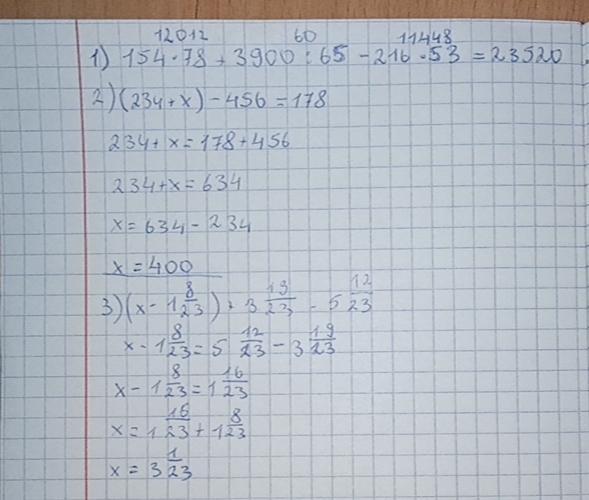 12012 60 11448
1) 154·78 + 3900 : 65 - 216·53 = 23520
2) (234 + x) - 456 = 178
234 + x = 178 + 456
234 + x = 634
x = 634 - 234
x = 400
3) (x - 1 8/23) + 3 19/23 - 5 12/23
x - 1 8/23 = 5 12/23 - 3 19/23
x - 1 8/23 = 1 16/23
x = 1 16/23 + 1 8/23
x = 3 1/23